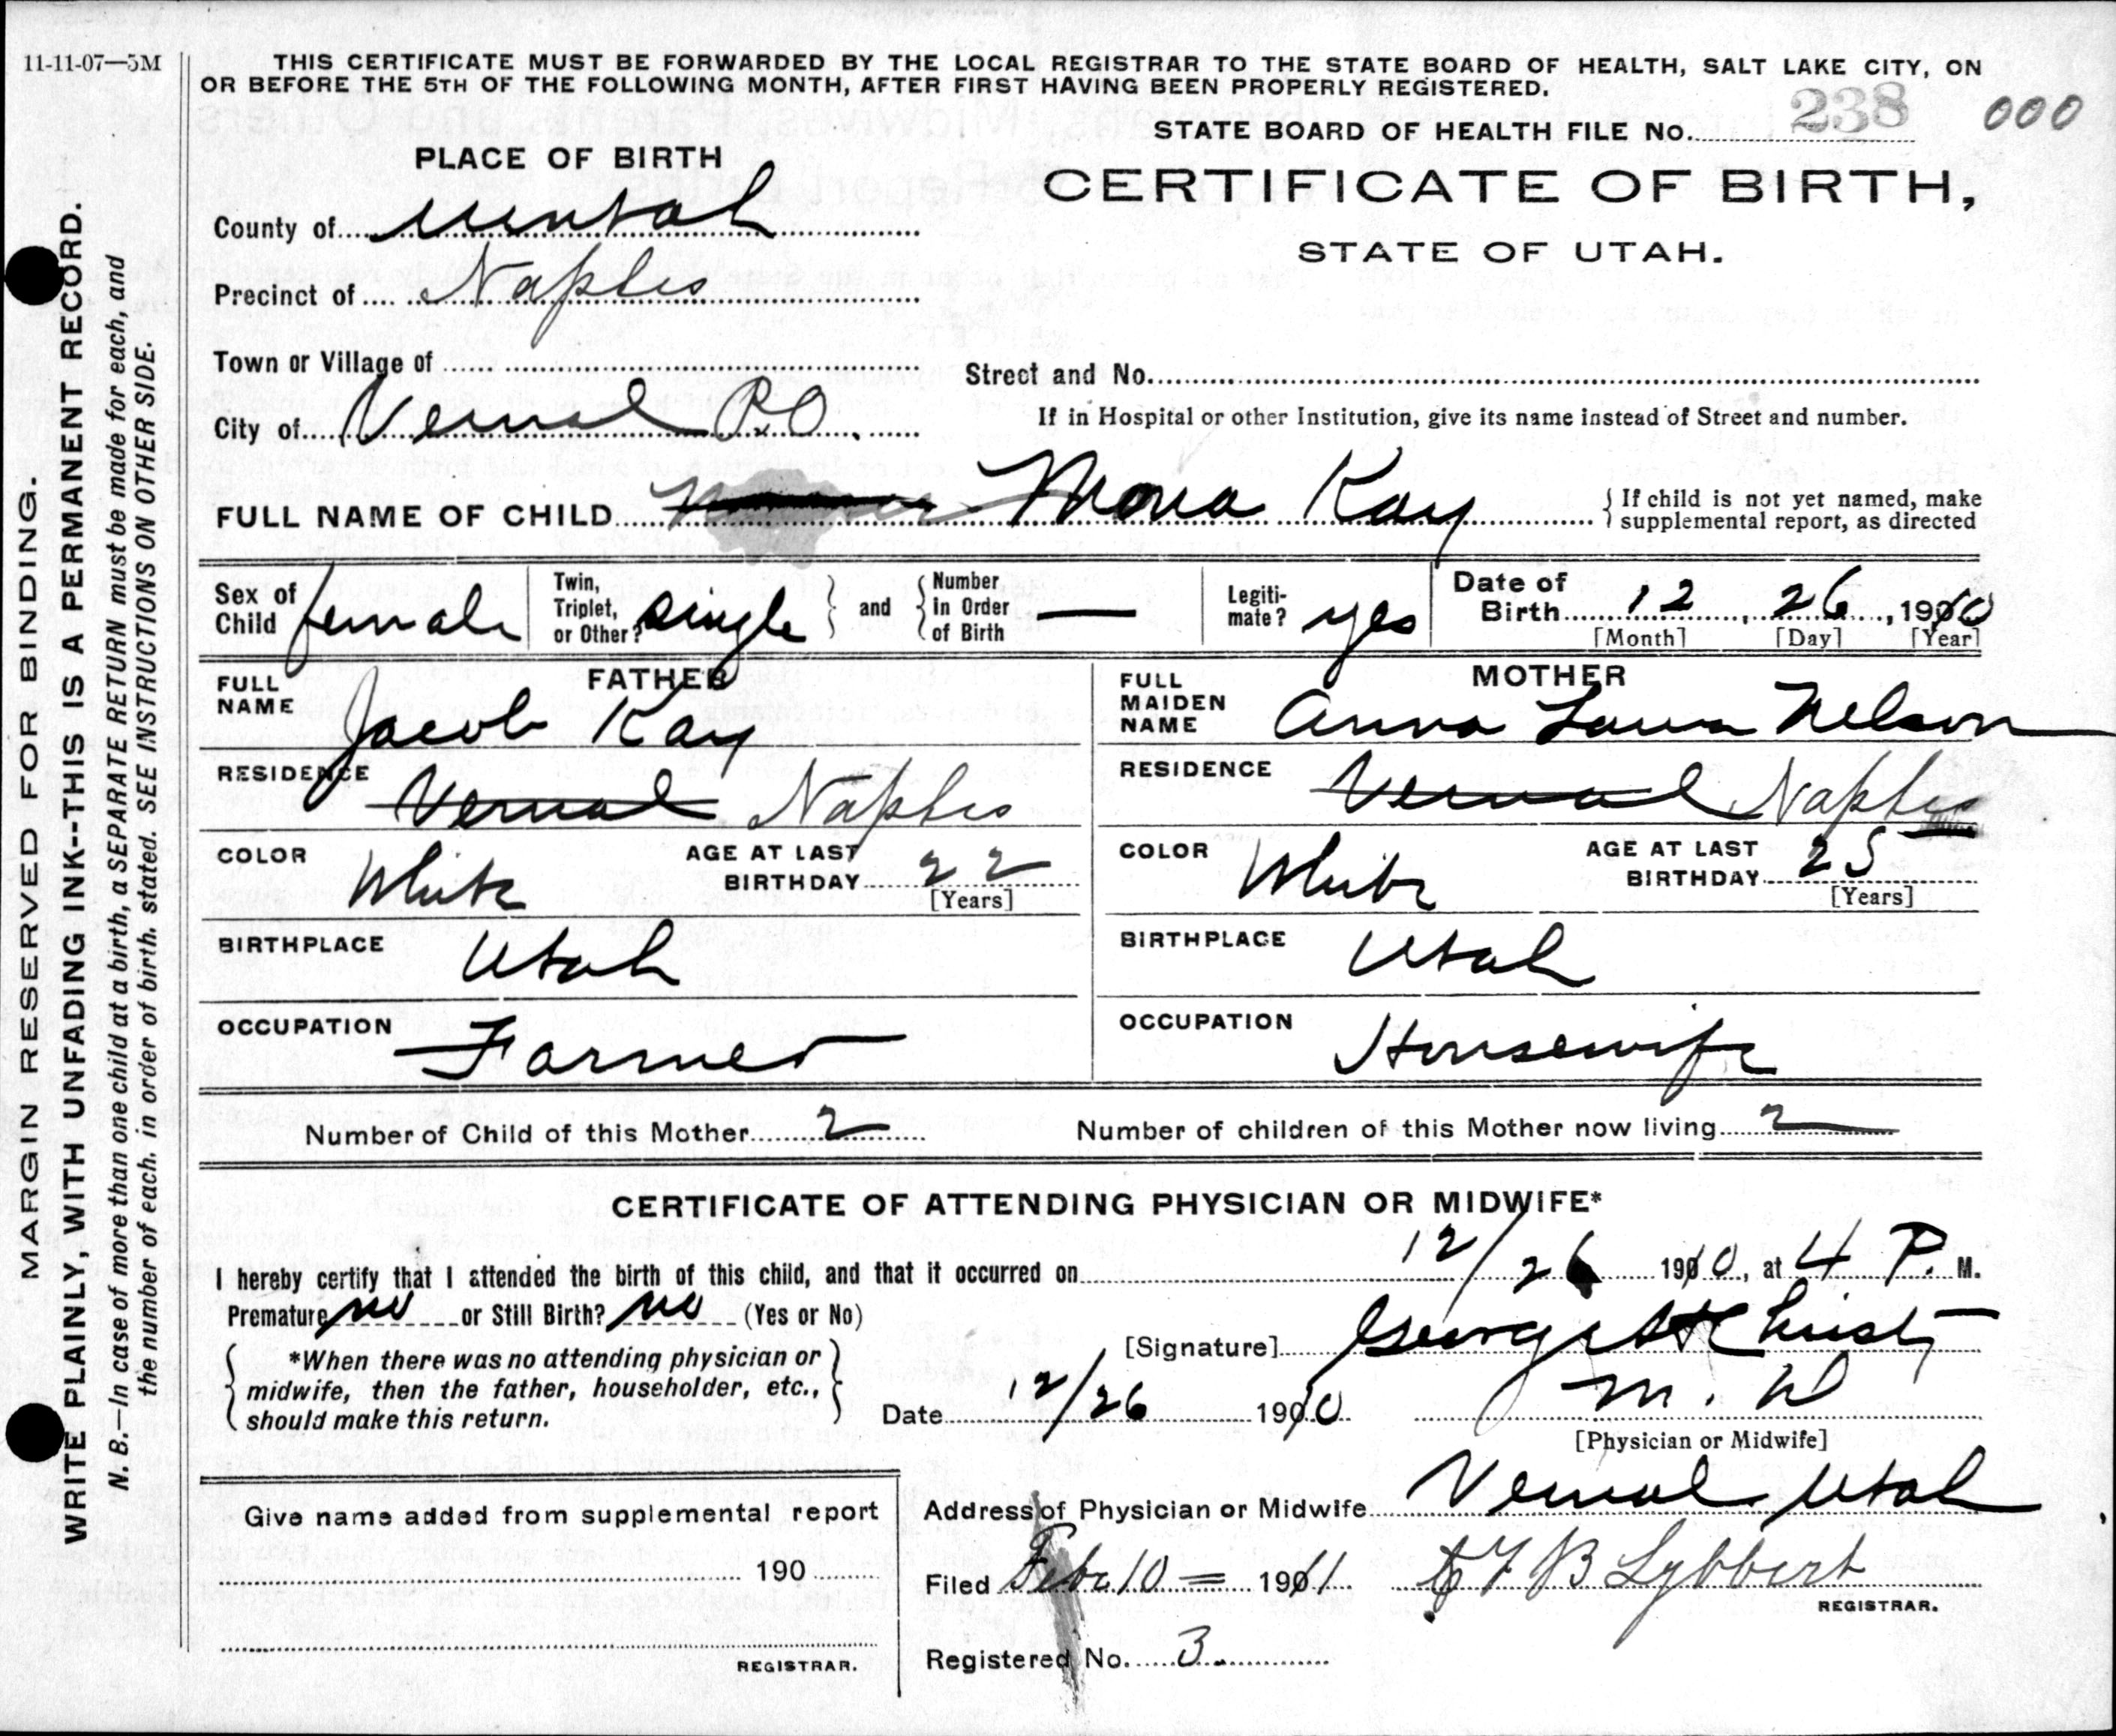 11-11-07—5M
THIS CERTIFICATE MUST BE FORWARDED BY THE LOCAL REGISTRAR TO THE STATE BOARD OF HEALTH, SALT LAKE CITY, ON
OR BEFORE THE 5TH OF THE FOLLOWING MONTH, AFTER FIRST HAVING BEEN PROPERLY REGISTERED.
STATE BOARD OF HEALTH FILE No. 238 000
PLACE OF BIRTH
CERTIFICATE OF BIRTH,
STATE OF UTAH.
County of Uintah
Precinct of Naples
Town or Village of
Street and No.
City of Vernal P.O.
If in Hospital or other Institution, give its name instead of Street and number.
FULL NAME OF CHILD Mona Kay
{If child is not yet named, make
supplemental report, as directed
Sex of Child female
Twin, Triplet, or Other? single } and { Number in Order of Birth —
Legiti-mate? yes
Date of Birth 12, 26, 1910
[Month] [Day] [Year]
FATHER
FULL NAME Jacob Kay
RESIDENCE Vernal Naples
COLOR White
AGE AT LAST BIRTHDAY 22
[Years]
BIRTHPLACE Utah
OCCUPATION Farmer
MOTHER
FULL MAIDEN NAME Anna Laura Nelson
RESIDENCE Vernal Naples
COLOR White
AGE AT LAST BIRTHDAY 25
[Years]
BIRTHPLACE Utah
OCCUPATION Housewife
Number of Child of this Mother 2
Number of children of this Mother now living 2
CERTIFICATE OF ATTENDING PHYSICIAN OR MIDWIFE*
I hereby certify that I attended the birth of this child, and that it occurred on 12/26 1910, at 4 P. M.
Premature no or Still Birth? no (Yes or No)
{ *When there was no attending physician or
midwife, then the father, householder, etc.,
should make this return. }
[Signature] George H Christy
Date 12/26 1910
M. D
[Physician or Midwife]
Address of Physician or Midwife Vernal Utah
Give name added from supplemental report
190
REGISTRAR.
Filed Feb 10 = 1911 C F B Lybbert
REGISTRAR.
Registered No. 3.
MARGIN RESERVED FOR BINDING.
WRITE PLAINLY, WITH UNFADING INK--THIS IS A PERMANENT RECORD.
N. B.—In case of more than one child at a birth, a SEPARATE RETURN must be made for each, and
the number of each. in order of birth. stated. SEE INSTRUCTIONS ON OTHER SIDE.